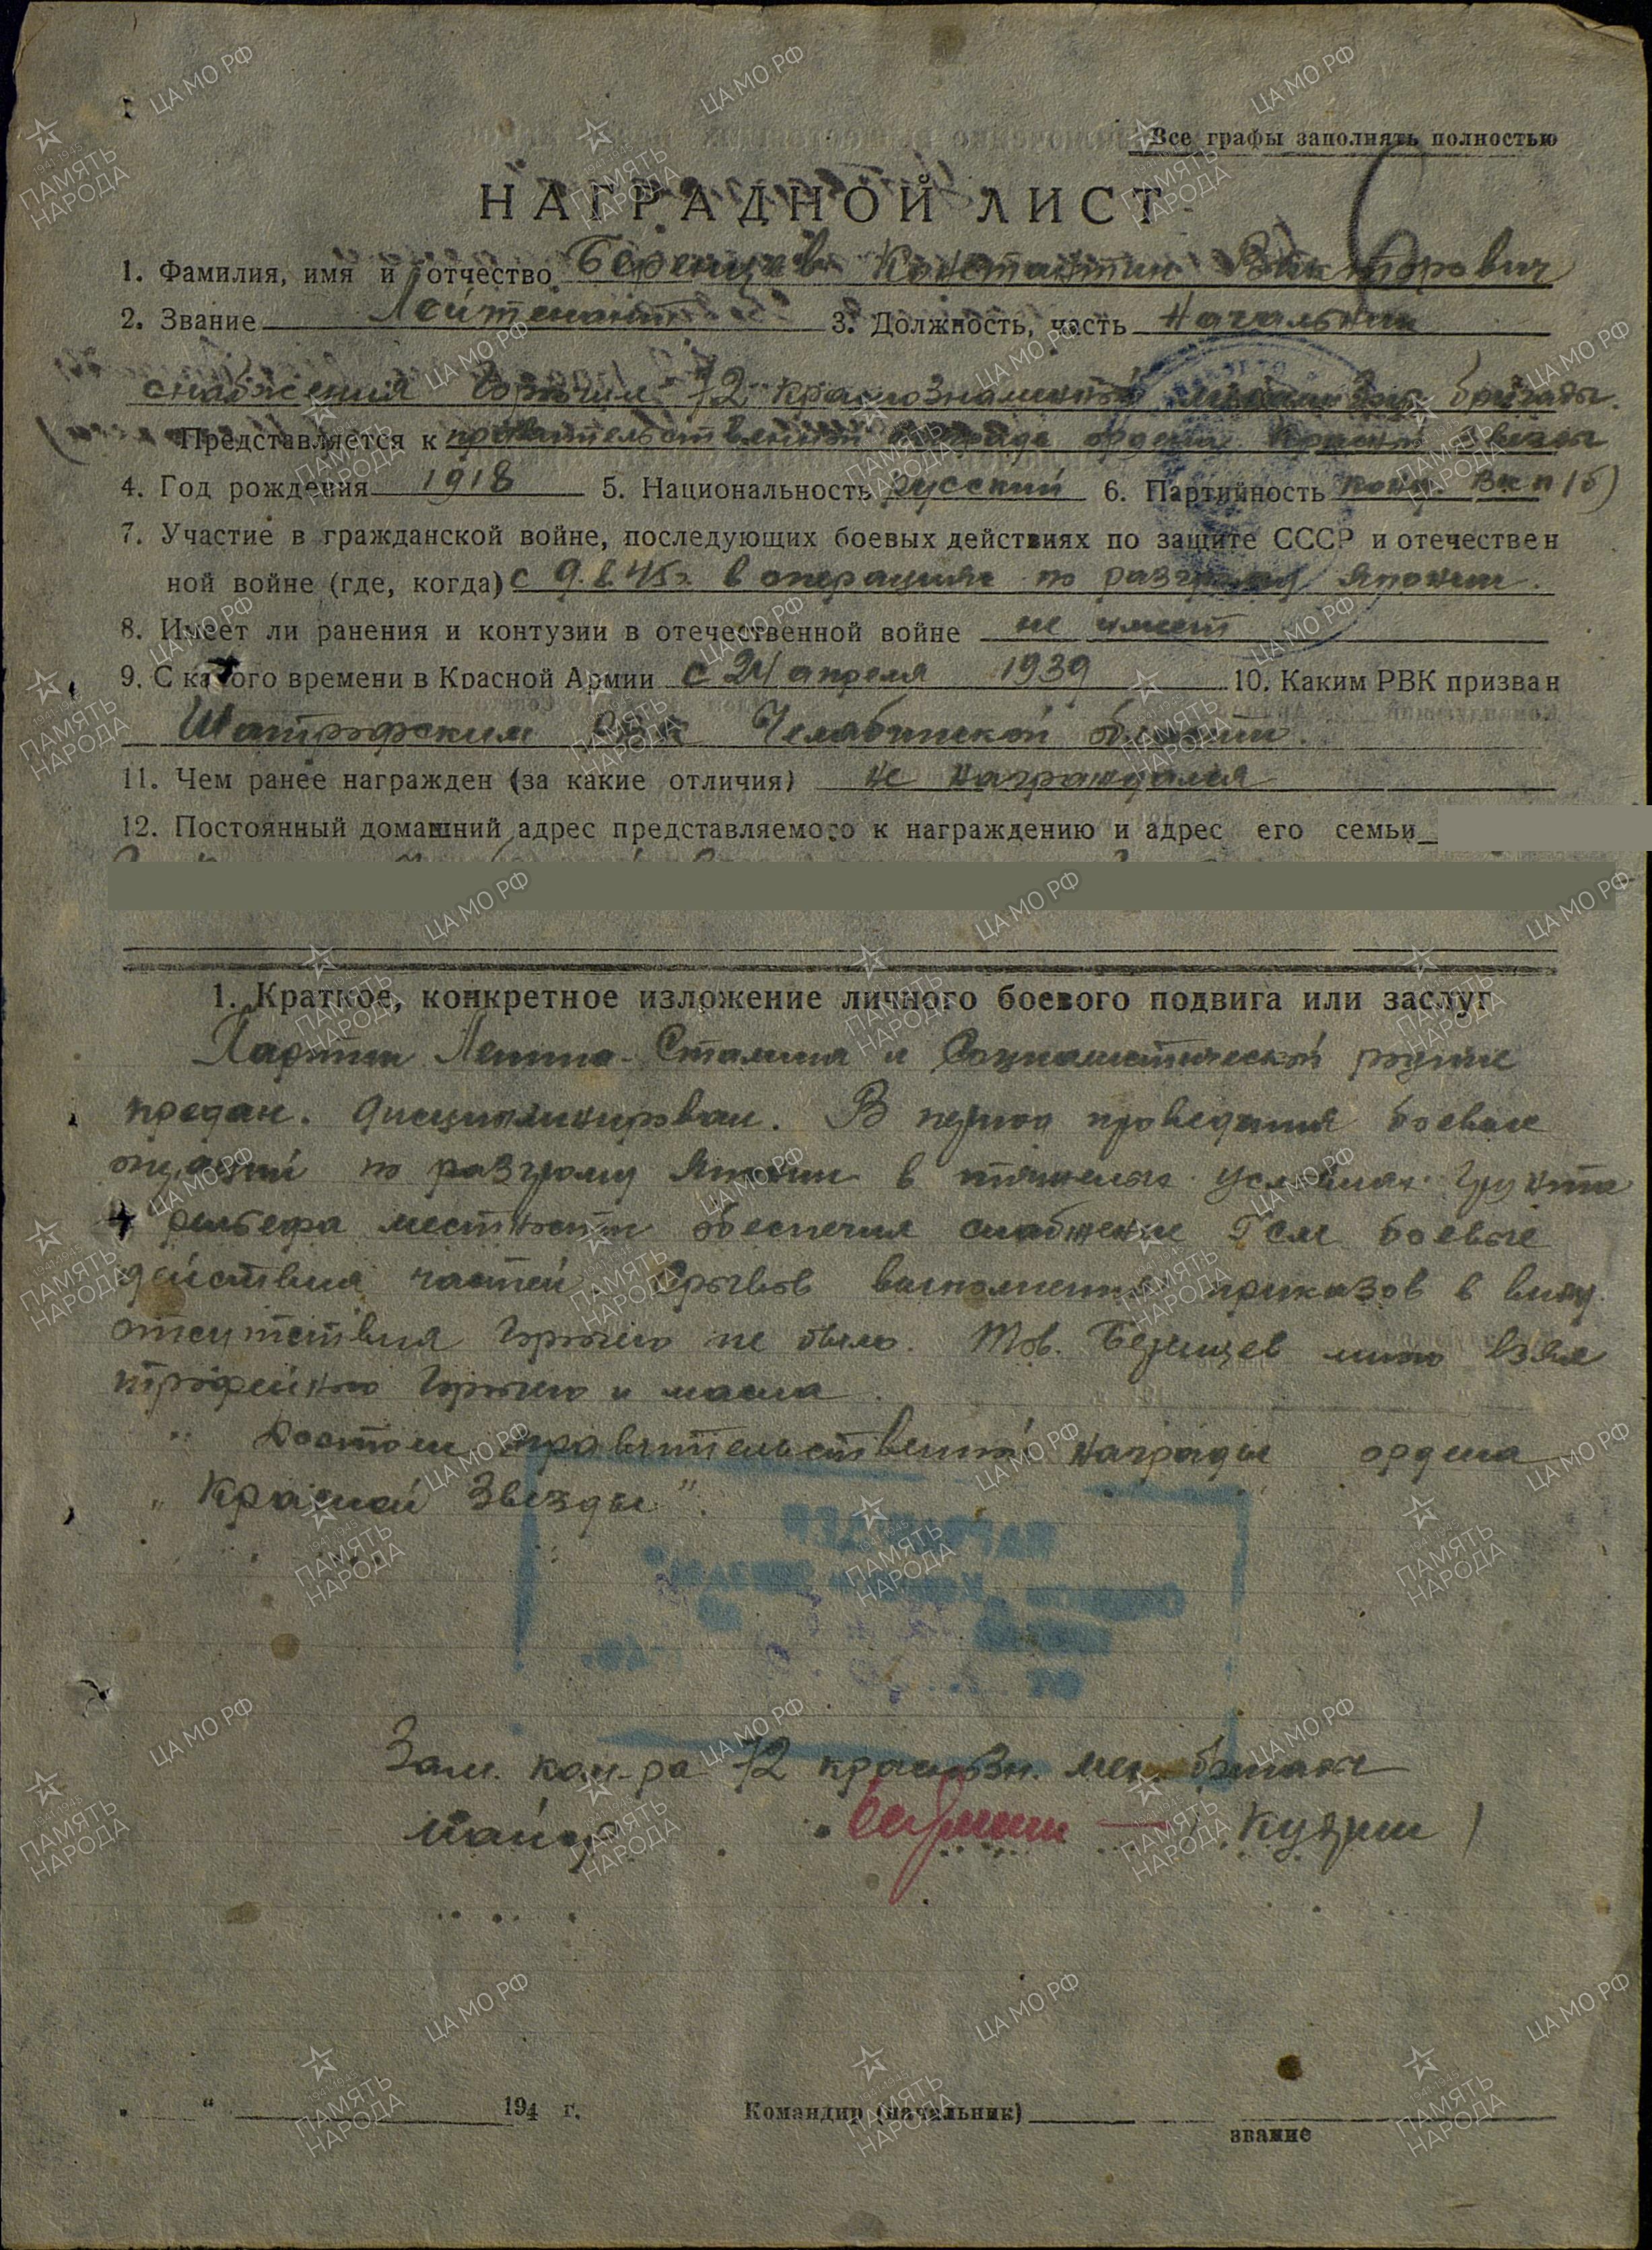 Все графы заполнять полностью
НАГРАДНОЙ ЛИСТ
1. Фамилия, имя и отчество Беренцев Константин Викторович
2. Звание Лейтенант 3. Должность, часть Начальник
снабжения горючим 72 краснознаменной бригады.
Представляется к правительственной награде ордена Красной Звезды
4. Год рождения 1918 5. Национальность русский 6. Партийность канд. ВКП(б)
7. Участие в гражданской войне, последующих боевых действиях по защите СССР и отечествен
ной войне (где, когда) с 9.8.45г. в операциях по разгрому Японии.
8. Имеет ли ранения и контузии в отечественной войне не имеет
9. С какого времени в Красной Армии с 24 апреля 1939 10. Каким РВК призван
Шатровским РВК Челябинской области.
11. Чем ранее награжден (за какие отличия) не награждался
12. Постоянный домашний адрес представляемого к награждению и адрес его семьи
1. Краткое, конкретное изложение личного боевого подвига или заслуг
Партии Ленина-Сталина и Социалистической родине
предан. Дисциплинирован. В период проведения боевых
операций по разгрому Японии в тяжелых условиях грунта
и рельефа местности обеспечил снабжение Гсм боевые
действия частей. Срывов выполнения приказов в виду
отсутствия горючего не было. Тов. Беренцев лично взял
трофейного горючего и масла.
Достоин правительственной награды ордена
„Красной Звезды".
Зам. ком-ра 72 краснозн. мех. бригады
майор (Кудрин)
" 194 г. Командир (начальник)
звание